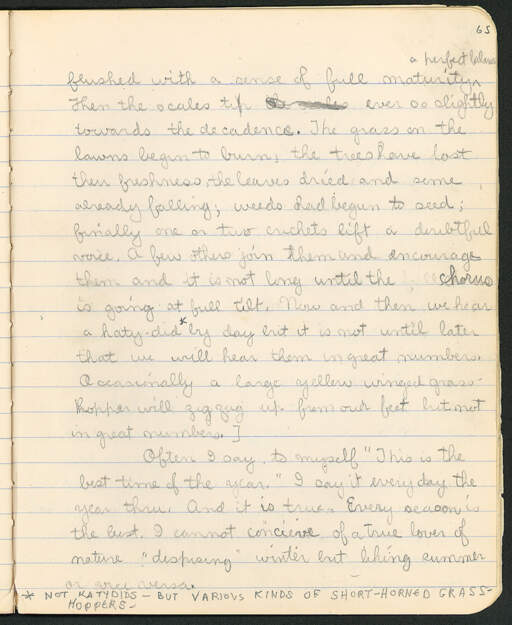 65
a perfect balance
flushed with a sense of full maturity,
Then the scales tip ever so slightly
towards the decadence. The grass on the
lawns begin to burn, the trees have lost
their freshness, the leaves dried and some
already falling; weeds had begun to seed;
finally one or two crickets lift a doubtful
voice. A few others join them and encourage
them and it is not long until the chorus
is going at full tilt. Now and then we hear
a katy-did* by day but it is not until later
that we will hear them in great numbers.
Occasionally a large yellow winged grass-
hopper will zig zug up from our feet but not
in great numbers.]
Often I say to myself "This is the
best time of the year." I say it every day the
year thru. And it is true. Every season is
the best. I cannot concieve of a true lover of
nature "despising" winter but liking summer
or vice versa.
* NOT KATYDIDS - BUT VARIOUS KINDS OF SHORT-HORNED GRASS-
HOPPERS -